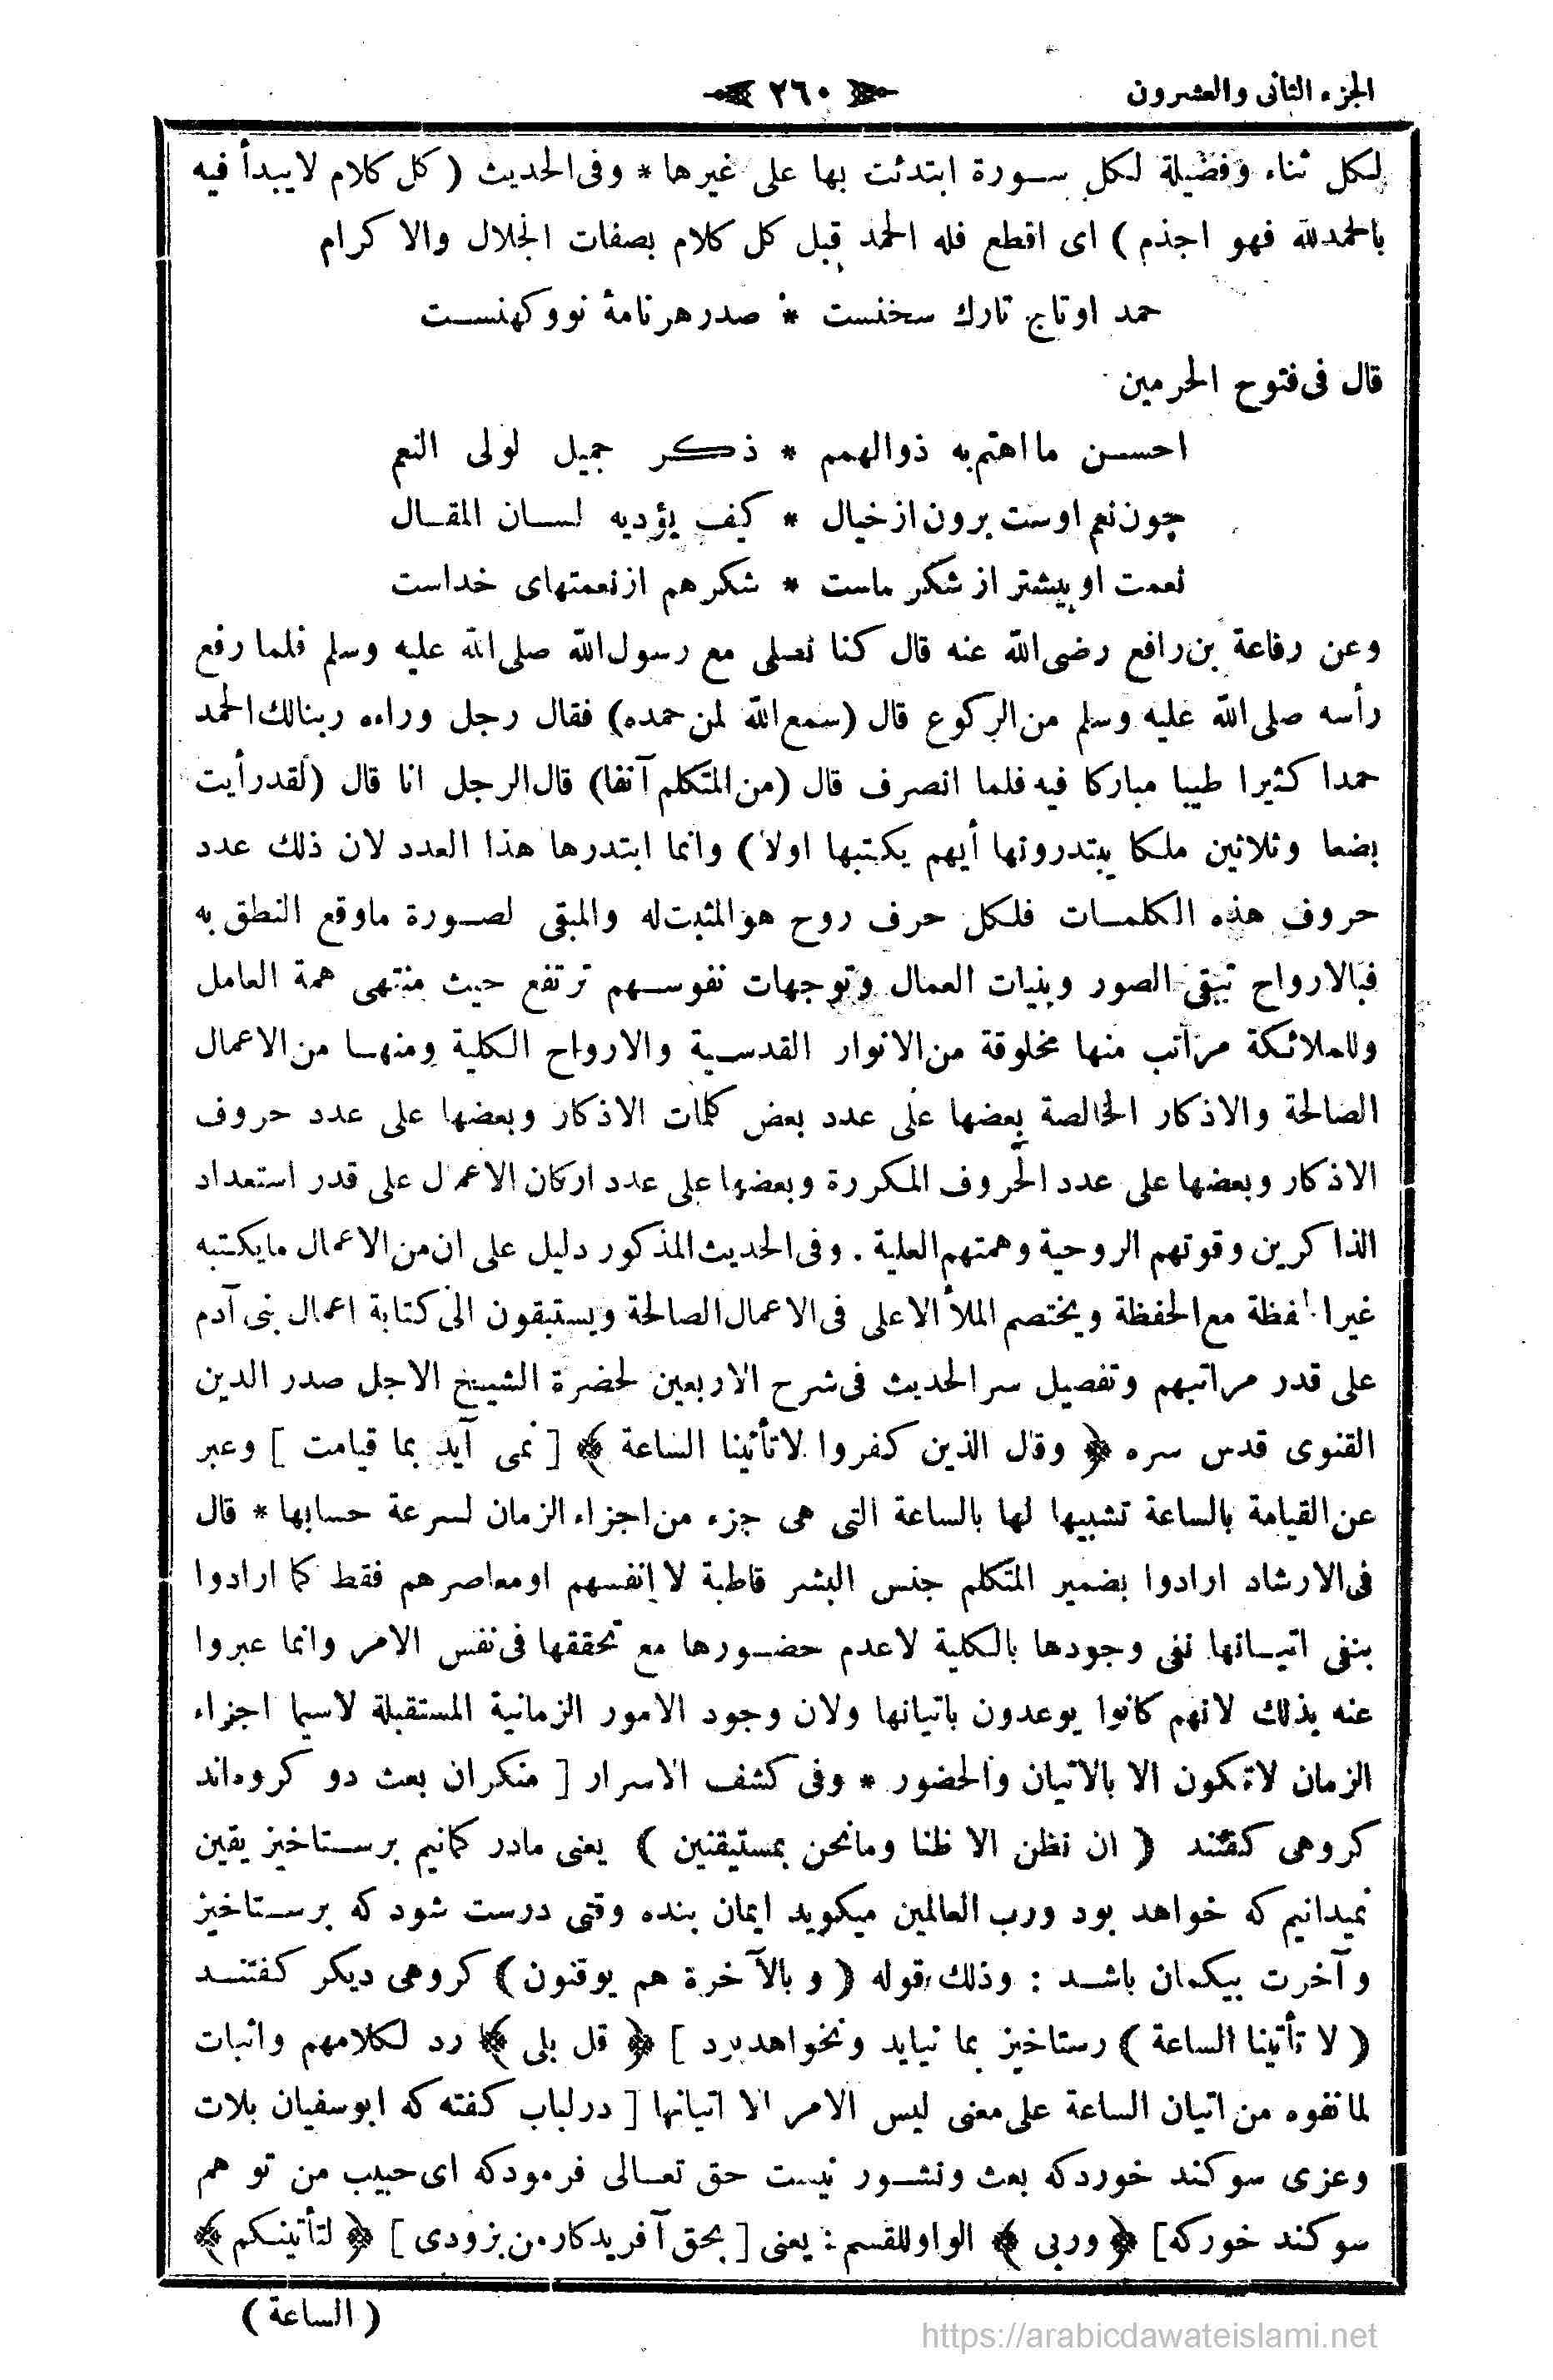 الجزء الثانى والعشرون
٢٦٠
لكل ثناء وفضيلة لكل سورة ابتدئت بها على غيرها * وفى الحديث ( كل كلام لايبدأ فيه
بالحمد لله فهو اجذم ) اى اقطع فله الحمد قبل كل كلام بصفات الجلال والاكرام
حمد اوتاج تارك سخنست * صدر هر نامۀ نو وكهنست
قال فى فتوح الحرمين
احسن ما اهتم به ذو الهمم * ذكر جميل لولى النعم
چون نعم اوست برون از خيال * كيف يؤديه لسان المقال
نعمت او بيشتر از شكر ماست * شكر هم از نعمتهاى خداست
وعن رفاعة بن رافع رضى الله عنه قال كنا نصلى مع رسول الله صلى الله عليه وسلم فلما رفع
رأسه صلى الله عليه وسلم من الركوع قال (سمع الله لمن حمده) فقال رجل وراءه ربنالك الحمد
حمدا كثيرا طيبا مباركا فيه فلما انصرف قال (من المتكلم آنفا) قال الرجل انا قال (لقد رأيت
بضعا وثلاثين ملكا يبتدرونها أيهم يكتبها اولا) وانما ابتدرها هذا العدد لان ذلك عدد
حروف هذه الكلمات فلكل حرف روح هو المثبت له والمبقى لصورة ماوقع النطق به
فبالارواح تبقى الصور وبنيات العمال وتوجهات نفوسهم ترتفع حيث منتهى همة العامل
وللملائكة مراتب منها مخلوقة من الانوار القدسية والارواح الكلية ومنها من الاعمال
الصالحة والاذكار الخالصة بعضها على عدد بعض كلمات الاذكار وبعضها على عدد حروف
الاذكار وبعضها على عدد الحروف المكررة وبعضها على عدد اركان الاعمال على قدر استعداد
الذاكرين وقوتهم الروحية وهمتهم العلية . وفى الحديث المذكور دليل على ان من الاعمال مايكتبه
غير الحفظة مع الحفظة ويختصم الملأ الاعلى فى الاعمال الصالحة ويستبقون الى كتابة اعمال بنى آدم
على قدر مراتبهم وتفصيل سر الحديث فى شرح الاربعين لحضرة الشيخ الاجل صدر الدين
القنوى قدس سره ﴿ وقال الذين كفروا لاتأتينا الساعة ﴾ [ نمى آيد بما قيامت ] وعبر
عن القيامة بالساعة تشبيها لها بالساعة التى هى جزء من اجزاء الزمان لسرعة حسابها * قال
فى الارشاد ارادوا بضمير المتكلم جنس البشر قاطبة لا انفسهم او معاصرهم فقط كما ارادوا
بنفى اتيانها نفى وجودها بالكلية لاعدم حضورها مع تحققها فى نفس الامر وانما عبروا
عنه بذلك لانهم كانوا يوعدون باتيانها ولان وجود الامور الزمانية المستقبلة لاسيما اجزاء
الزمان لاتكون الا بالاتيان والحضور * وفى كشف الاسرار [ منكران بعث دو كروه اند
كروهى كفتند ( ان نظن الا ظنا ومانحن بمستيقنين ) يعنى مادر كمانيم برستاخيز يقين
نميدانيم كه خواهد بود ورب العالمين ميكويد ايمان بنده وقتى درست شود كه برستاخيز
وآخرت بيكمان باشد : وذلك قوله ( وبالآخرة هم يوقنون ) كروهى ديكر كفتند
( لا تأتينا الساعة ) رستاخيز بما نيايد ونخواهد بود ] ﴿ قل بلى ﴾ رد لكلامهم واثبات
لمانفوه من اتيان الساعة على معنى ليس الامر الا اتيانها [ در لباب كفته كه ابو سفيان بلات
وعزى سوكند خورد كه بعث ونشور نيست حق تعالى فرمود كه اى حبيب من تو هم
سوكند خور كه] ﴿ وربى ﴾ الواو للقسم : يعنى [ بحق آفريد كار من بزودى ] ﴿ لتأتينكم ﴾
( الساعة )
https://arabicdawateislami.net